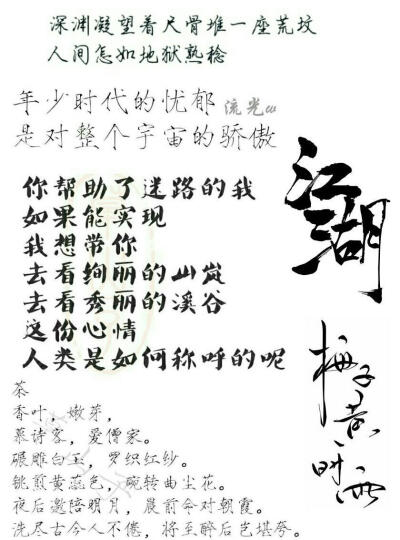 深渊凝望着尺骨堆一座荒坟
人间怎如地狱熟稔
年少时代的忧郁 流光
是对整个宇宙的骄傲
江湖
你帮助了迷路的我
如果能实现
我想带你
去看绚丽的山岚
去看秀丽的溪谷
这份心情
人类是如何称呼的呢
梅子黄时雨
茶
香叶，嫩芽，
慕诗客，爱僧家。
碾雕白玉，罗织红纱。
铫煎黄蕊色，碗转曲尘花。
夜后邀陪明月，晨前命对朝霞。
洗尽古今人不倦，将至醉后岂堪夸。